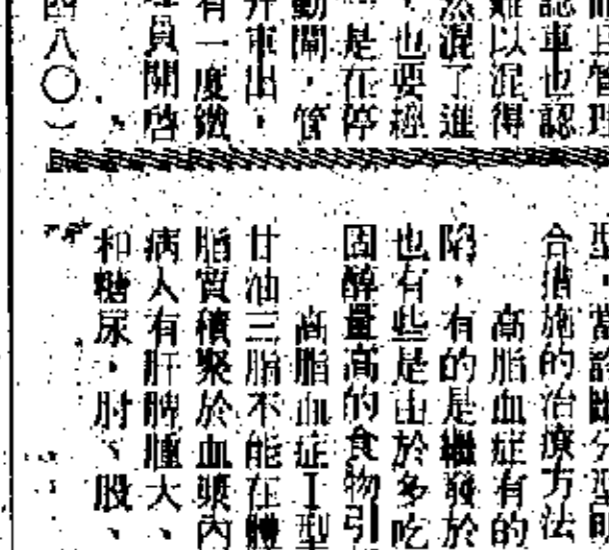 而且管理
認車也認
難以混得
然混了進
，也要經
是在停
動閘，管
車出，
有一度鐵
員開啓
四八〇）
型，當診斷分型明
合措施的治療方法
高脂血症有的
陷，有的是繼發於
也有些是由於多吃
固醇量高的食物引
高脂血症I型
甘油三脂不能在體
脂質積聚於血漿內
病人有肝脾腫大、
和糖尿，肘、股、